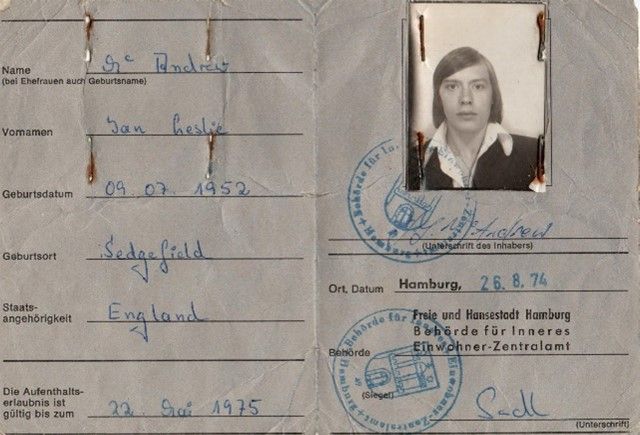 Name Mc Andrew
(bei Ehefrauen auch Geburtsname)
Vornamen Ian Leslie
Geburtsdatum 09. 07. 1952
Geburtsort Sedgefield
Staats-
angehörigkeit England
Die Aufenthalts-
erlaubnis ist
gültig bis zum 22. Mai 1975
Behörde für Inneres
Hamburg
Zentralamt
I. McAndrew
(Unterschrift des Inhabers)
Ort, Datum Hamburg, 26. 8. 74
Freie und Hansestadt Hamburg
Behörde für Inneres
Einwohner-Zentralamt
Behörde
Hamburg Behörde für Inneres Einwohner-Zentralamt
(Siegel)
(Unterschrift)